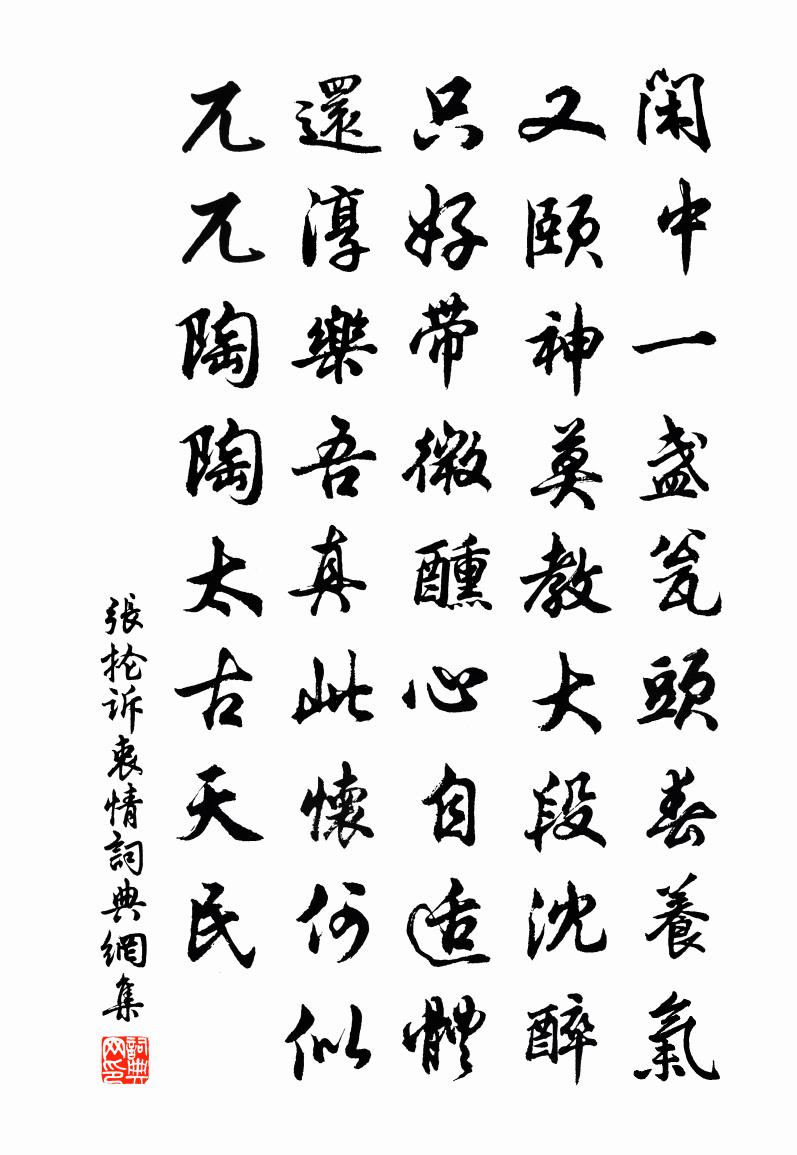 閑中一盞瓮頭春養氣
又頤神莫教大段沈醉
只好帶微醺心自适體
還淳樂吾真此懷何似
兀兀陶陶太古天民
張掄诉衷情詞典網集
詞典网印